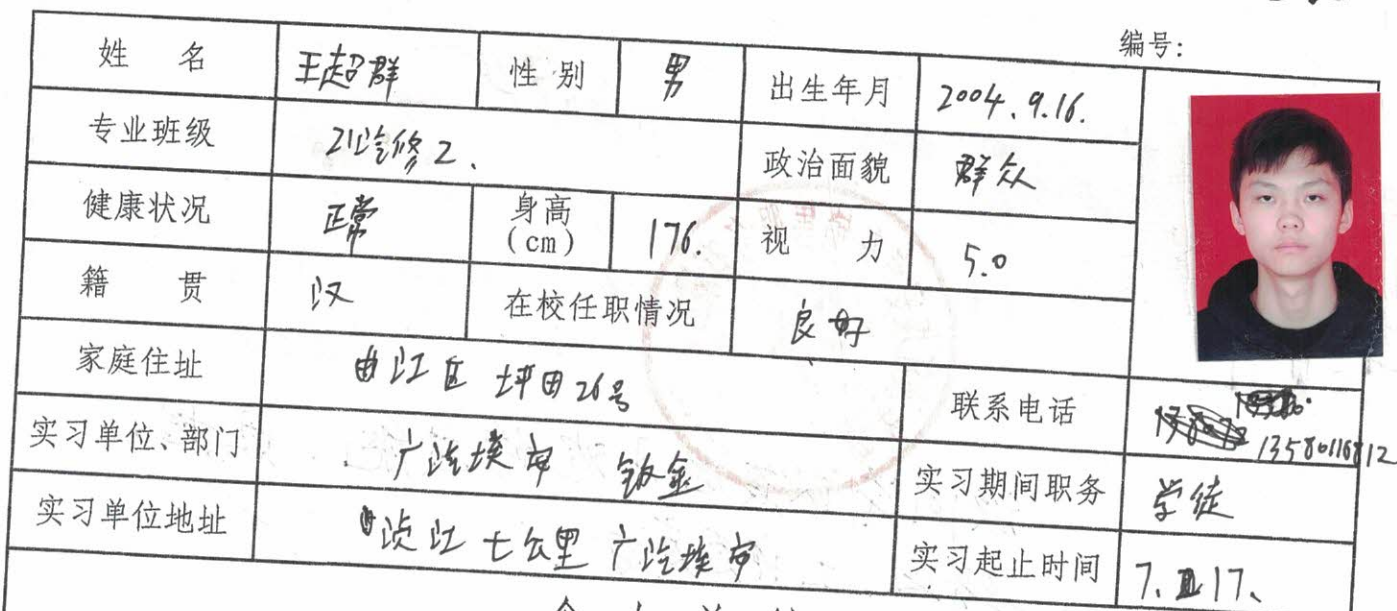 编号:
姓 名 王超群 性 别 男 出生年月 2004.9.16.
专业班级 21汽修2、 政治面貌 群众
健康状况 正常 身高(cm) 176. 视 力 5.0
籍 贯 汉 在校任职情况 良好
家庭住址 曲江区 坪田26号 联系电话 13580116812
实习单位、部门 广汽埃安 钣金 实习期间职务 学徒
实习单位地址 浈江七公里广汽埃安 实习起止时间 7. 17、